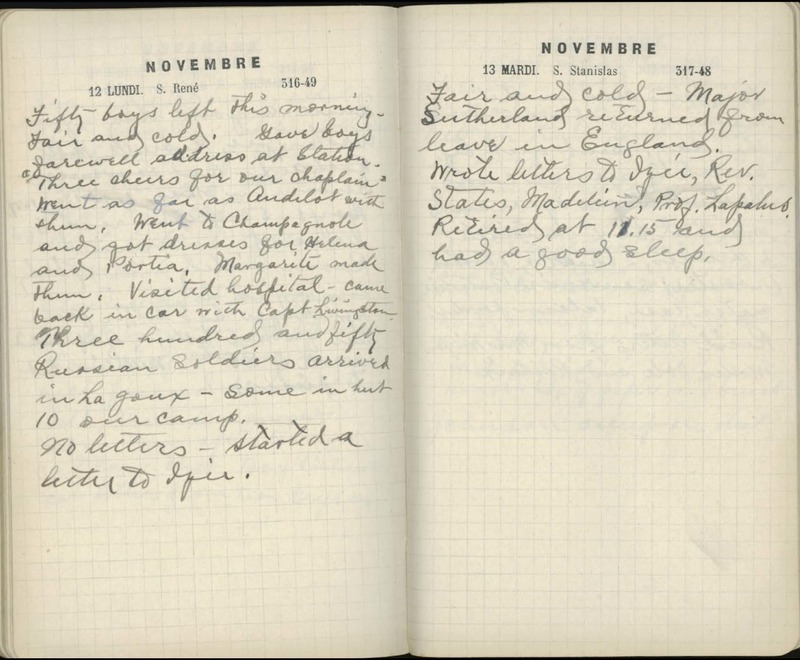 NOVEMBRE
12 LUNDI. S. René 316-49
Fifty boys left this morning.
Fair and cold. Gave boys
farewell address at Station.
"Three cheers for our chaplain"
Went as far as Andelot with
them. Went to Champagnole
and got dresses for Helena
and Portia. Margarite made
them. Visited hospital - came
back in car with Capt Livingston
Three hundred and fifty
Russian soldiers arrived
in La Joux - Some in hut
10 our camp.
No letters - started a
letter to
NOVEMBRE
13 MARDI. S. Stanislas 317-48
Fair and cold - Major
Sutherland returned from
leave in England.
Wrote letters to Rev.
States, Madelein, Prof.
Retired at 11.15 and
had a good sleep.